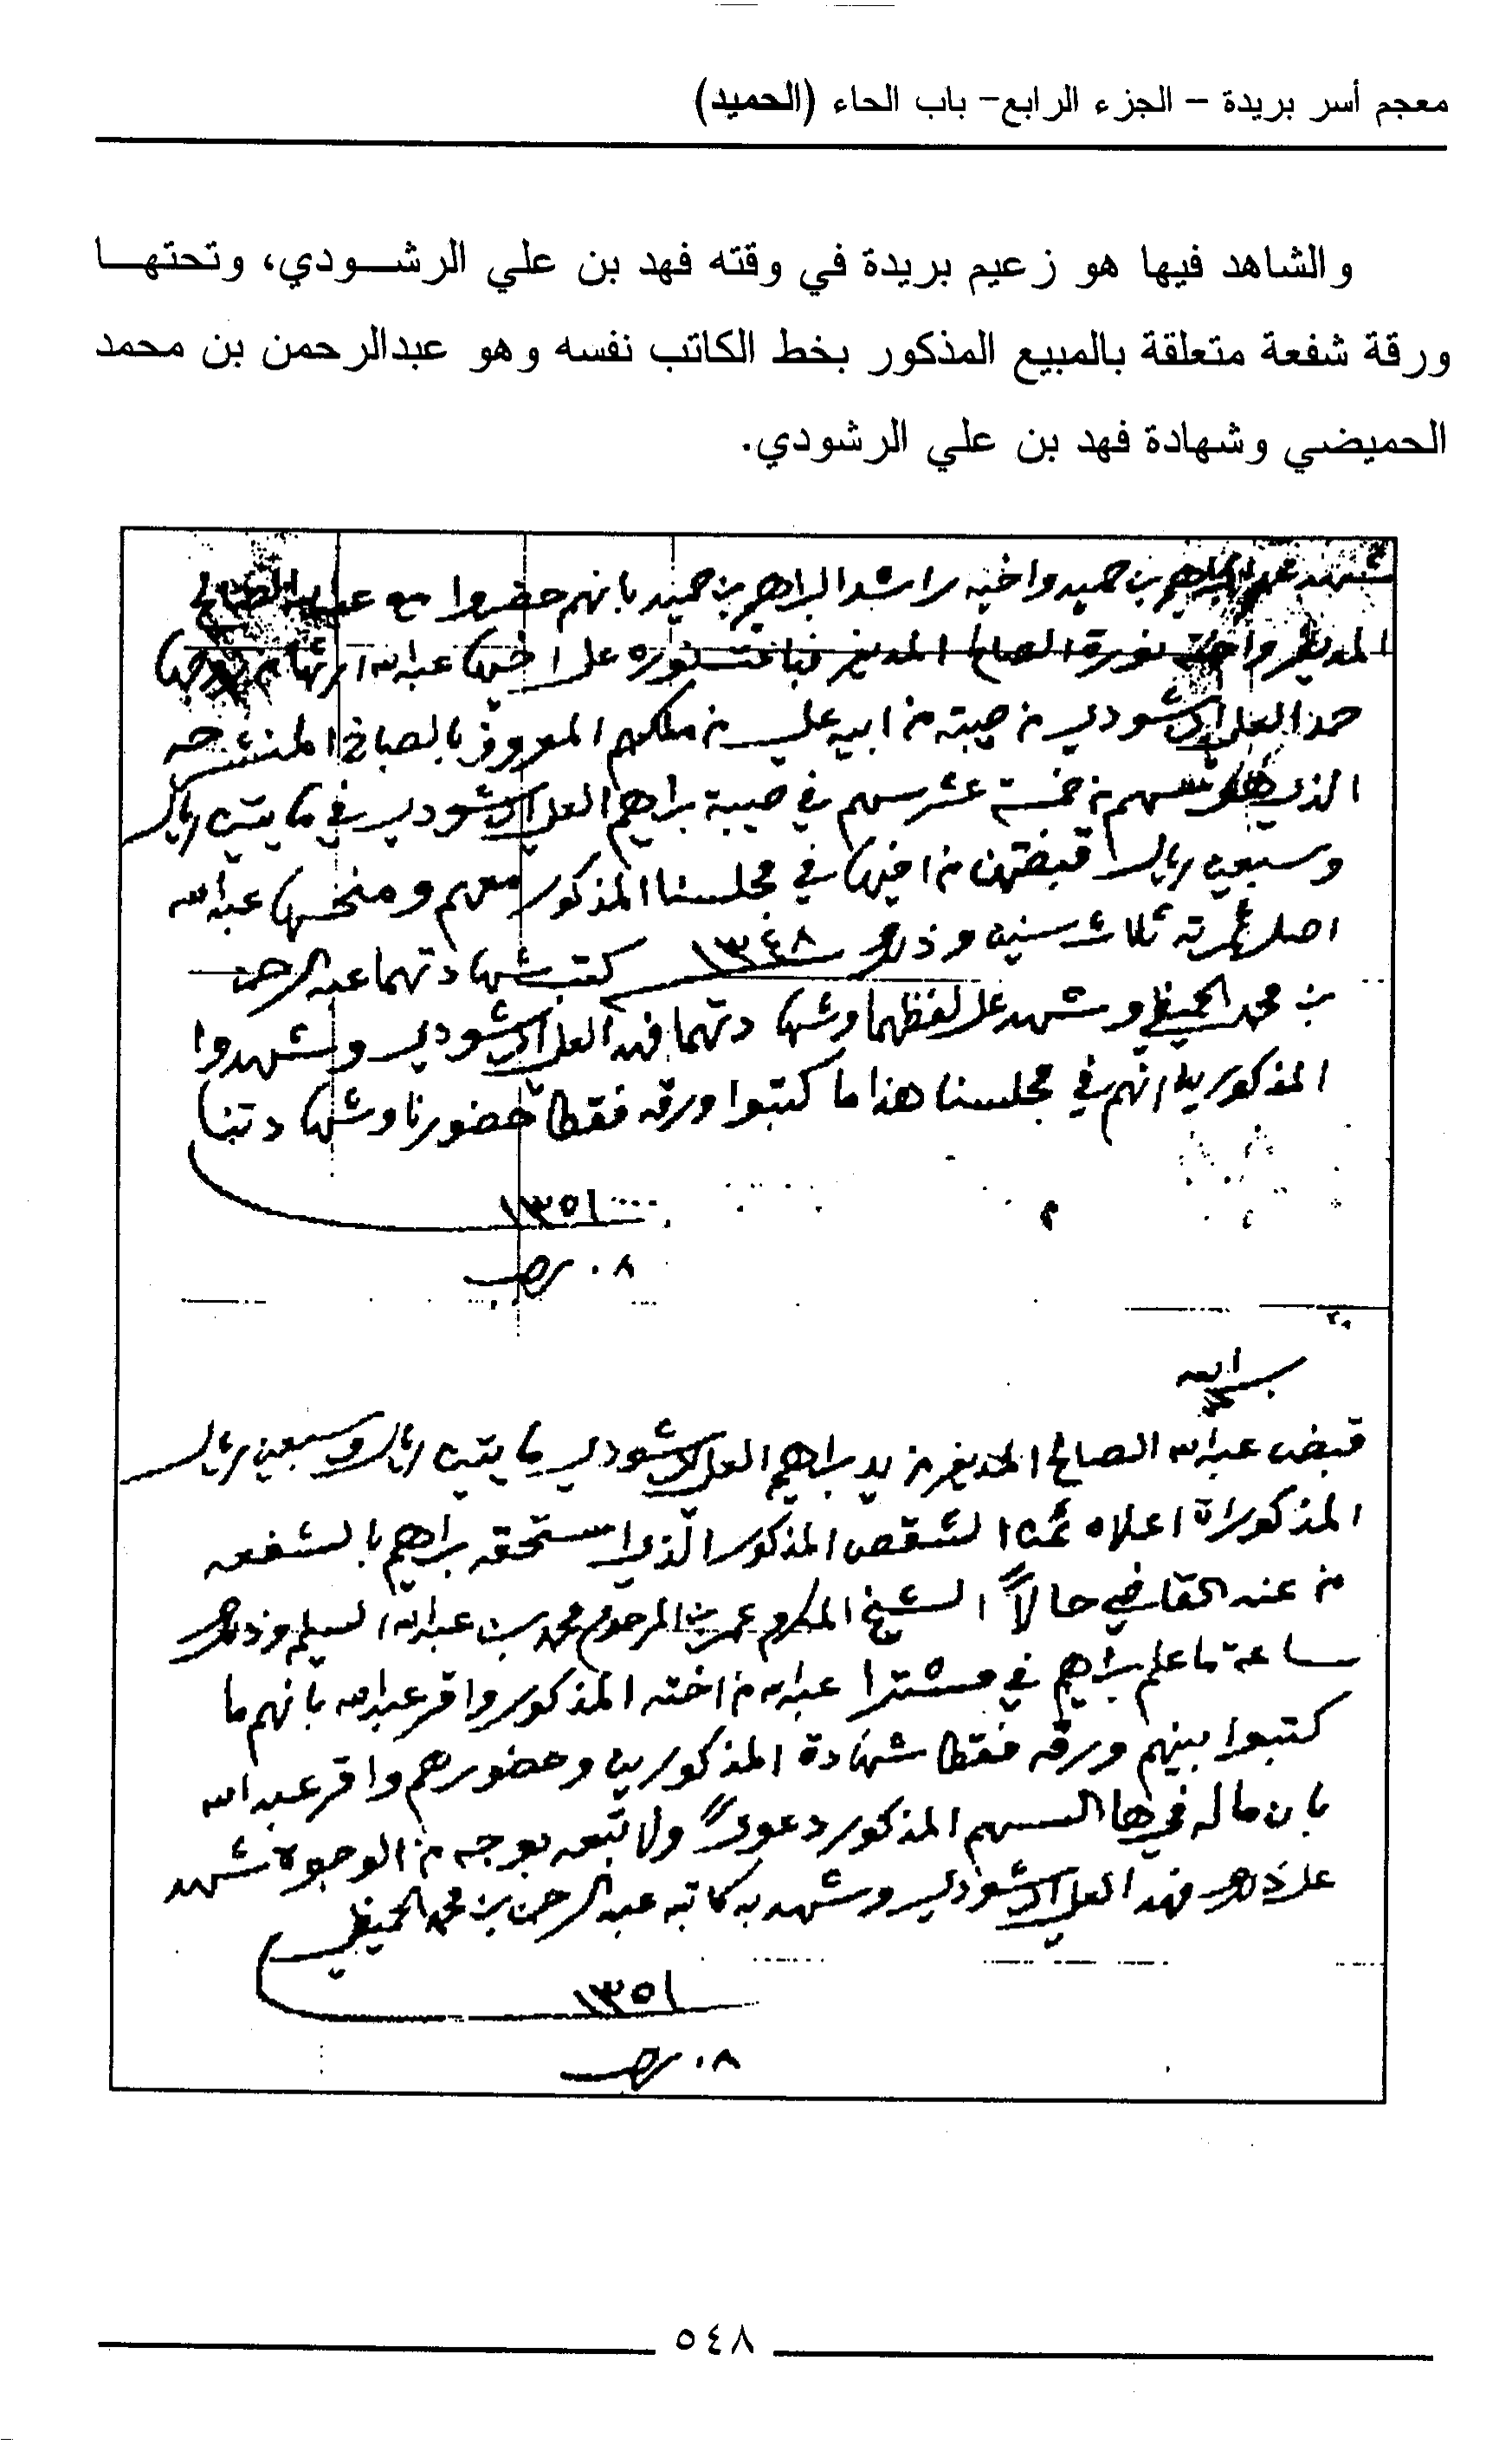 معجم أسر بريدة – الجزء الرابع– باب الحاء (الحميد)
والشاهد فيها هو زعيم بريدة في وقته فهد بن علي الرشودي، وتحتها
ورقة شفعة متعلقة بالمبيع المذكور بخط الكاتب نفسه وهو عبدالرحمن بن محمد
الحميضي وشهادة فهد بن علي الرشودي.
شهد بن حميد واخيه راشد البراهيم بن حميد بانهم حضروا مع
نورة الصالح المديفر فباعت نوره على اخيها عبدالله ارثها من زوجها
حمد العلي الرشودي من صيبته من ابيه علي من ملكهم المعروف بالصباخ
الذي هو سهم من خمسة عشر سهم في صيبة براهيم العلي الرشودي في مايتين ريال
وسبعين ريال قبضتهن من اخيها في مجلسنا المذكور معهم ومنخسها عبدالله
اصل ثمرته ثلاث سنين وذلك ١٣٤٨ كتب شهادتهما عبدالرحمن
بن محمد الحميضي وشهد على لفظهما وشهادتهما فهد العلي الرشودي وشهدوا
المذكورين انهم في مجلسنا هذا ما كتبوا ورقه فقط حضورنا وشهادتنا
١٣٥١
٠٨ رجب
بسم الله
قبض عبدالله الصالح المديفر من يد براهيم العلي الرشودي مايتين ريال وسبعين ريال
المذكورة اعلاه ثمن الشقص المذكور الذي استحقه براهيم بالشفعه
من عند القاضي حالاً الشيخ المكرم عمر بن المرحوم محمد بن عبدالله السليم وذلك
ساعة ما علم براهيم في مشترا عبدالله من اخته المذكور واقر عبدالله بانهم ما
كتبوا بينهم ورقه فقط شهادة المذكورين وحضورهم واقر عبدالله
بان ماله في ها السهم المذكور دعوىً ولا تبعه بوجه من الوجوه شهد
على ذلك فهد العلي الرشودي وشهد به كاتبه عبدالرحمن بن محمد الحميضي
١٣٥١
٠٨ رجب
٥٤٨